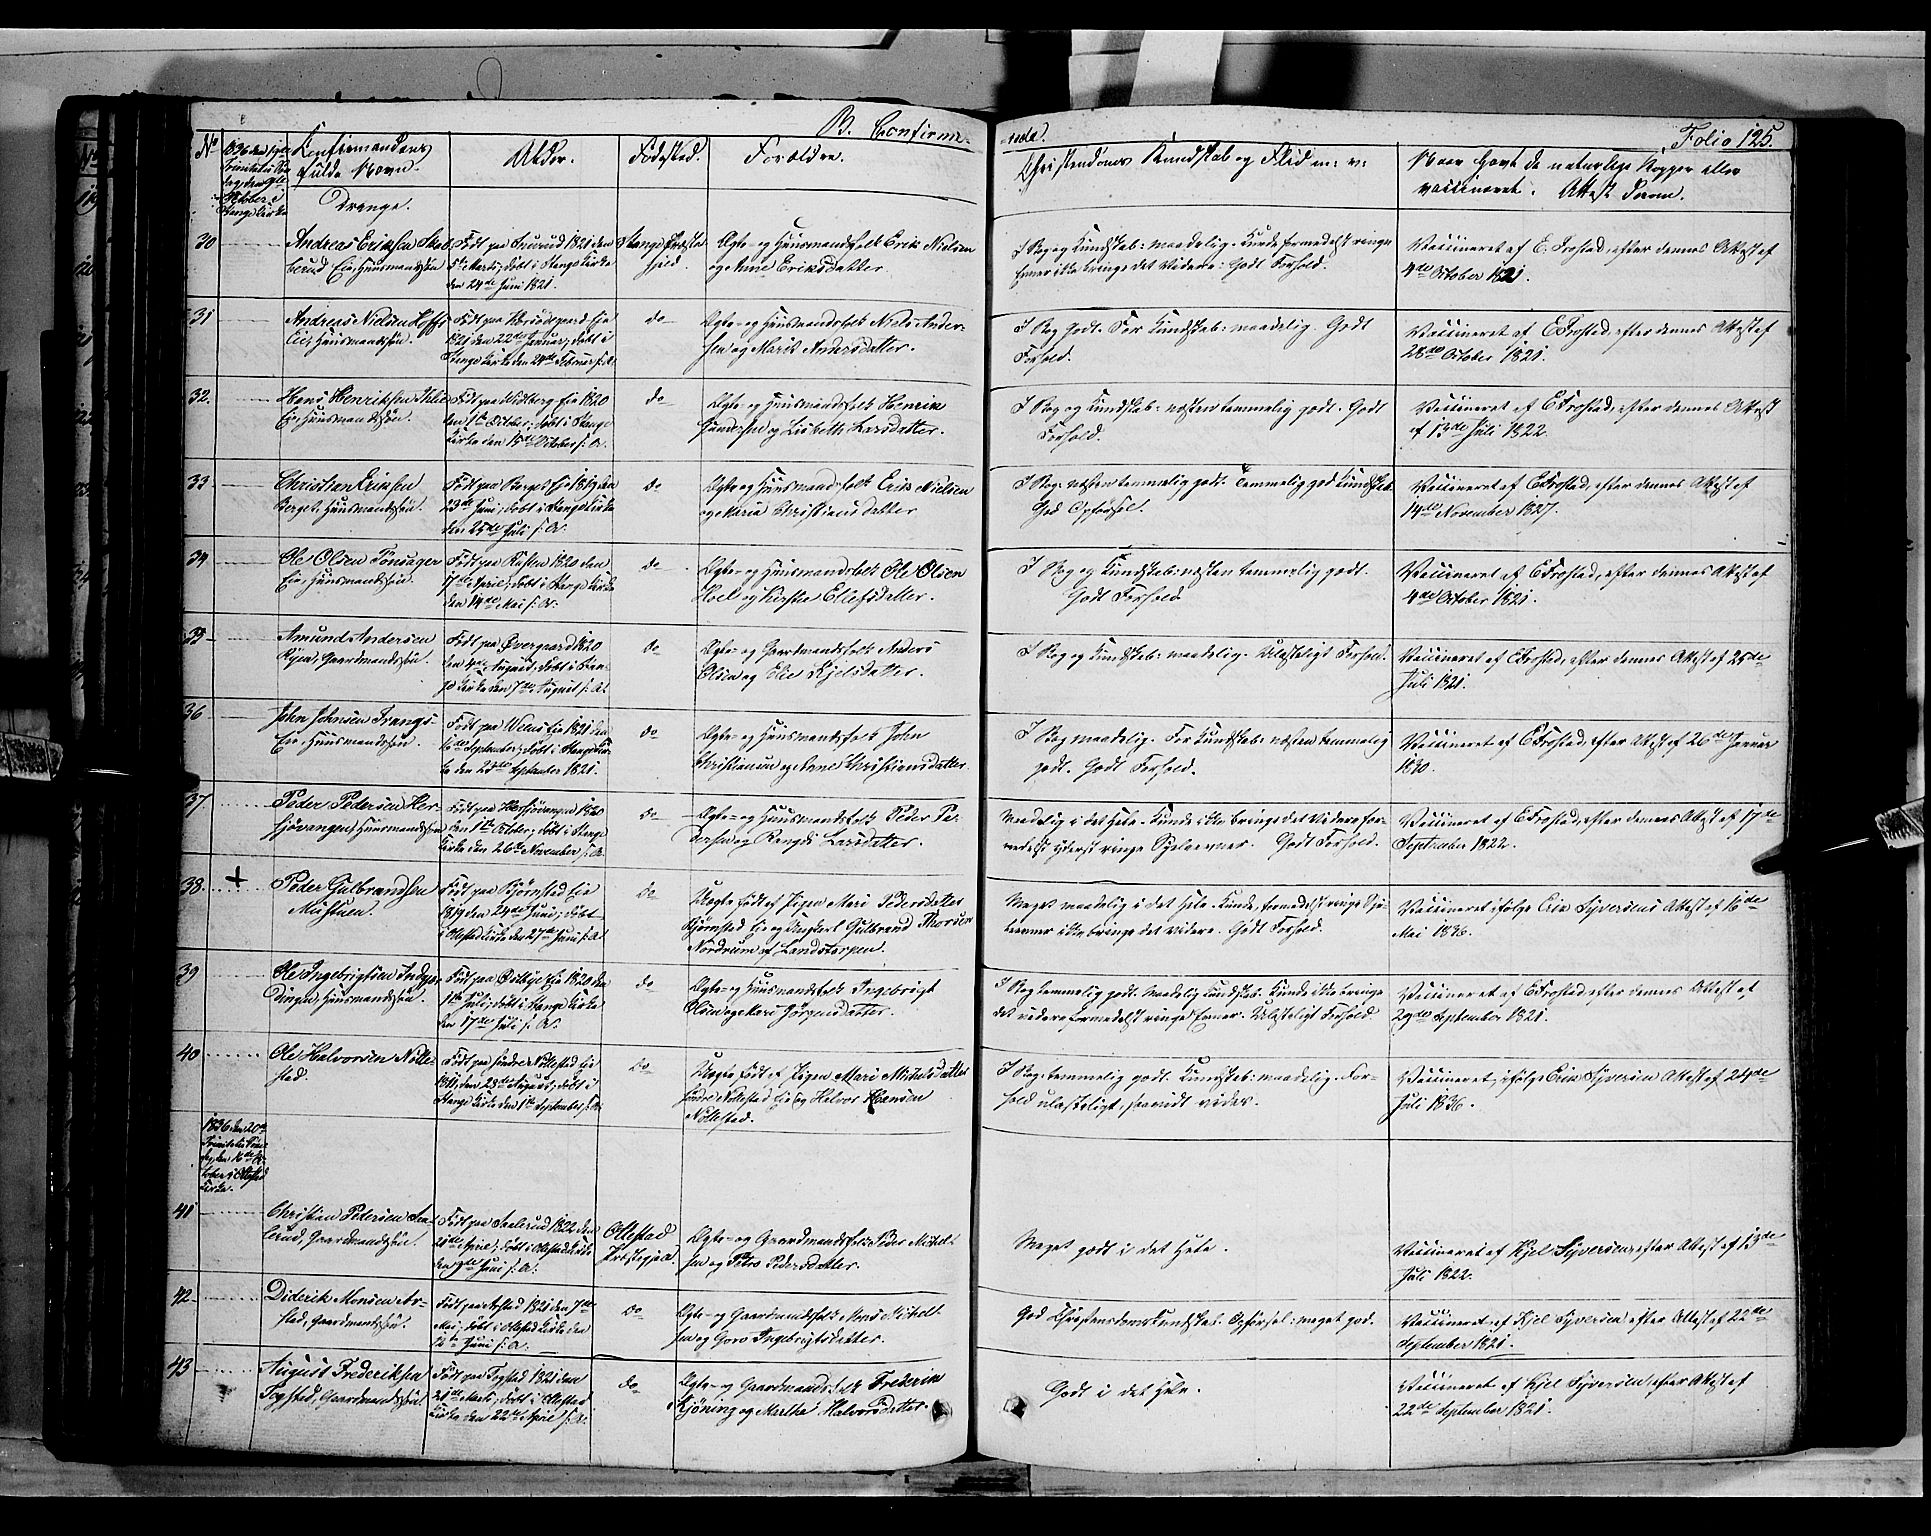 B. Confirme-
-rede.
Folio 125.
No
1836 den 19de
Trinitatis Søn-
dag, den 9de
October i
Stange Kirke
Konfirmandens
fulde Navn.
Drenge.
Alder.
Fødested.
Forældre.
Christendoms Kundskab og Flid m: v:
Naar havt de naturlige Kopper eller
vaccineret. Attest derom.
30
Andreas Eriksen Skol-
berud Eie, Huusmandssøn
Født paa 1821 den
5te Marts; døbt i Stange Kirke
den 24de Juni 1821.
Stange Præste
gjeld.
Ægte- og Huusmandsfolk Erik Nielsen
og Anne Eriksdatter.
I Bog og Kundskab: maadelig. Kunde formedelst ringe
Evner ikke bringe det videre: Godt Forhold.
Vaccineret af E. Frostad, efter dennes Attest af
4de October 1821.
31
Andreas Nielsen
Eie, Huusmandssøn.
Født paa Eie
1821 den 22de Januar; døbt i
Stange Kirke den 24de Februar s: A.
do
Ægte- og Huusmandsfolk Niels Ander-
sen og Marit Andersdatter.
I Bog godt. For Kundskab: maadelig. Godt
Forhold.
Vaccineret af E Frostad, efter dennes Attest af
28de October 1821.
32.
Hans Henriksen
Eie, Huusmandssøn.
Født paa Widberg Eie 1820
den 1ste October; døbt i Stange
Kirke den 15de October s: A.
do
Ægte- og Huusmandsfolk Henrik
og Lisbeth Larsdatter.
I Bog og Kundskab: næsten temmelig godt. Godt
Forhold.
Vaccineret af E Frostad, efter dennes Attest
af 13de Juli 1822.
33
Christian Eriksen
Berget, Huusmandssøn.
Født paa Berget Eie 1819 den
23de Juni; døbt i Stange Kirke
den 25de Juli s: A.
do
Ægte og Huusmandsfolk Erik Nielsen
og Maria Christiansdatter
I Bog: næsten temmelig godt. Temmelig god Kundskab.
God Opførsel.
Vaccineret af E Frostad, efter dennes Attest af
14de November 1827.
34
Ole Olsen Tønsager
Eie, Huusmandssøn.
Født paa 1820 den
17de April; døbt i Stange Kirke
den 14de Mai s: A.
do
Ægte- og Huusmandsfolk Ole Olsen
Hoel og Kirstie Ellefsdatter.
I Bog og Kundskab: næsten temmelig godt.
Godt Forhold.
Vaccineret af E Frostad, efter dennes Attest af
4de October 1821.
35
Amund Andersen
Ryen, Gaardmandssøn.
Født paa Øvergaard 1820
den 4de August; døbt i Stan-
ge Kirke den 7de August s: A.
do
Ægte- og Gaardmandsfolk Anders
Olsen og Elie Kjelsdatter.
I Bog og Kundskab: maadelig. Ulasteligt Forhold.
Vaccineret af E Frostad, efter dennes Attest af 25de
Juli 1821.
36
John Johnsen Frangs-
Eie, Huusmandssøn.
Født paa Eie 1821 den
September; døbt i Stange Kir-
ke den 23de September 1821.
do
Ægte- og Huusmandsfolk John
Christiansen og Anne Christiansdatter
I Bog maadelig. For Kundskab: næsten temmelig
godt. Godt Forhold.
Vaccineret af E Frostad, efter Attest af 26de Januar
1830.
37
Peder Pedersen Her-
sjøvangen, Huusmandssøn
Født paa Hersjøvangen 1820
den 1ste October, døbt i Stange
Kirke den 26de November s: A.
do
Ægte- og Huusmandsfolk Peder Pe-
dersen og Rangdi Larsdatter.
Maadelig i det Hele. Kunde ikke bringe det videre for-
medelst yderst ringe Sjelsevner. Godt Forhold.
Vaccineret af E Frostad, efter dennes Attest af 17de
September 1822.
38.
+
Peder Gulbrandsen
Mustuen.
Født paa Bjørnstad Eie
1819 den 24de Juni; døbt
i Ottestad Kirke den 27de Juni s: A.
do
Uægte født af Pigen Mari Pedersdatter
Bjørnstad Eie og Ungkarl Gulbrand Thorsen
Nordrum af Land
Meget maadelig i det Hele. Kunde, formedelst ringe Sjels-
evner ikke bringe det videre. Godt Forhold.
Vaccineret ifølge Erik Syversens Attest af 16de
Mai 1836.
39
Ole Ingebrigtsen
Huusmandssøn.
Født paa Østbye Eie 1820 den
1ste Juli; døbt i Stange Kirke
den 17de Juli s: A.
do
Ægte- og Huusmandsfolk Ingebrigt
Olsen og Kari Jørgensdatter.
I Bog temmelig godt. Maadelig Kundskab. Kunde ikke bringe
det videre formedelst ringe Evner. Ulasteligt Forhold.
Vaccineret af E Frostad efter dennes Attest af
29de September 1821.
40
Ole Halvorsen Nølle-
stad.
Født paa Søndre Nøllestad Eie
1821, den 23de August; døbt i
Stange Kirke den 1ste September s: A.
do
Uægte født af Pigen Mari Michelsdatter
Søndre Nøllestad Eie og Halvor Hansen
Nøllestad.
I Bog: temmelig godt. Kundskab: maadelig. For-
hold ulasteligt, saavidt vides.
Vaccineret, ifølge Erik Syversens Attest af 24de
Juli 1836.
1836 den 20de
Trinitatis Søn-
dag, den 16de Oc-
tober i Ottestad
Kirke.
41
Christian Pedersen Saa-
lerud, Gaardmandssøn.
Født paa Saalerud 1822 den
April; døbt i Ottestad Kirke
den 9de Juni s: A.
Ottestad
Præstegjæld.
Ægte- og Gaardmandsfolk Peder Michel-
sen og Petro Pedersdatter.
Meget godt i det Hele.
Vaccineret af Kjel Syversen, efter Attest af 13de
Juli 1822.
42
Diderik Monsen Ar-
stad, Gaardmandssøn.
Født paa Arstad 1821 den 7de
Mai; døbt i Ottestad Kirke den
Juni s: A.
do
Ægte- og Gaardmandsfolk Mons Michel-
sen og Goro Ingebrigtsdatter.
God Christendomskundskab. Opførsel: meget god.
Vaccineret af Kjel Syversen, efter Attest af 22de
September 1821.
43
August Frederiksen
Fogstad, Gaardmandssøn.
Født paa Fogstad 1821 den
Marts; døbt i Ottestad
Kirke den 22de April s: A.
do
Ægte- og Gaardmandsfolk Frederik
Kjøning og Marthe Halvorsdatter.
Godt i det Hele.
Vaccineret af Kjel Syversen, efter Attest af
22de September 1821.